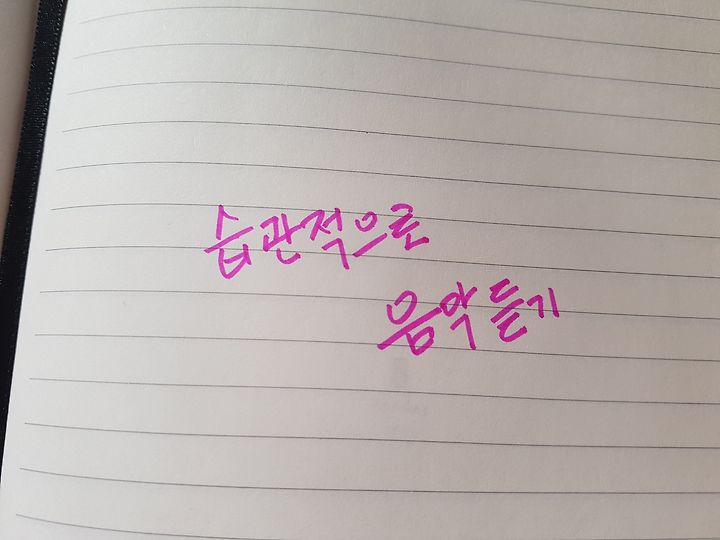 습관적으로
음악듣기